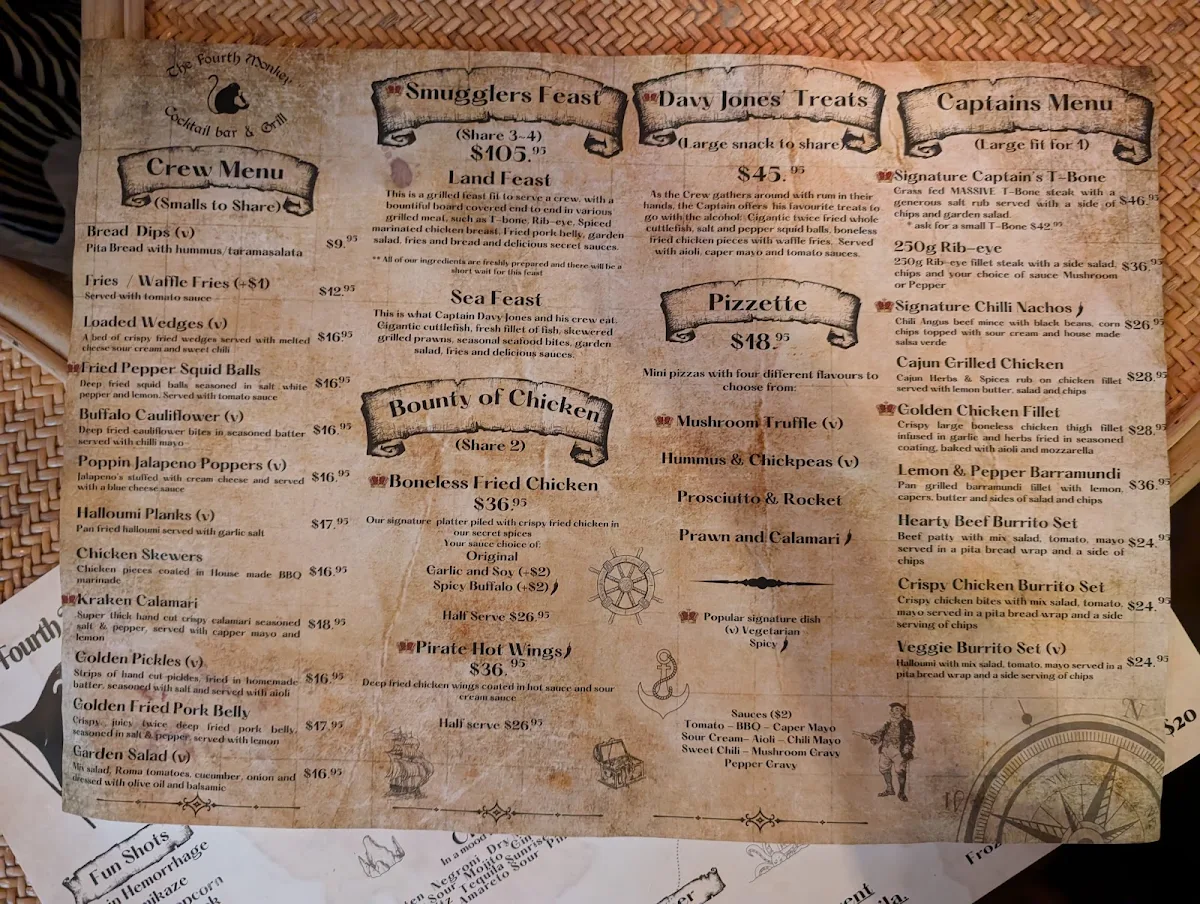 The Fourth Monkey
Cocktail bar & Grill
Crew Menu
(Smalls to Share)
Bread Dips (v)
Pita Bread with hummus/taramasalata
$9.95
Fries / Waffle Fries (+$1)
Served with tomato sauce
$12.95
Loaded Wedges (v)
A bed of crispy fried wedges served with melted
cheese sour cream and sweet chili
$16.95
Fried Pepper Squid Balls
Deep fried squid balls seasoned in salt white
pepper and lemon. Served with tomato sauce
$16.95
Buffalo Cauliflower (v)
Deep fried cauliflower bites in seasoned batter
served with chilli mayo
$16.95
Poppin Jalapeno Poppers (v)
Jalapeno's stuffed with cream cheese and served
with a blue cheese sauce
$16.95
Halloumi Planks (v)
Pan fried halloumi served with garlic salt
$17.95
Chicken Skewers
Chicken pieces coated in House made BBQ
marinade
$16.95
Kraken Calamari
Super thick hand cut crispy calamari seasoned
salt & pepper, served with capper mayo and
lemon
$18.95
Golden Pickles (v)
Strips of hand cut pickles, fried in homemade
batter, seasoned with salt and served with aioli
$16.95
Golden Fried Pork Belly
Crispy, juicy twice deep fried pork belly,
seasoned in salt & pepper, served with lemon
$17.95
Garden Salad (v)
Mix salad, Roma tomatoes, cucumber, onion and
dressed with olive oil and balsamic
$16.95
Smugglers Feast
(Share 3-4)
$105.95
Land Feast
This is a grilled feast fit to serve a crew, with a
bountiful board covered end to end in various
grilled meat, such as T-bone, Rib-eye, Spiced
marinated chicken breast, Fried pork belly, garden
salad, fries and bread and delicious secret sauces.
** All of our ingredients are freshly prepared and there will be a
short wait for this feast
Sea Feast
This is what Captain Davy Jones and his crew eat.
Gigantic cuttlefish, fresh fillet of fish, skewered
grilled prawns, seasonal seafood bites, garden
salad, fries and delicious sauces.
Bounty of Chicken
(Share 2)
Boneless Fried Chicken
$36.95
Our signature platter piled with crispy fried chicken in
our secret spices
Your sauce choice of:
Original
Garlic and Soy (+$2)
Spicy Buffalo (+$2)
Half Serve $26.95
Pirate Hot Wings
$36.95
Deep fried chicken wings coated in hot sauce and sour
cream sauce
Half serve $26.95
Davy Jones' Treats
(Large snack to share)
$45.95
As the Crew gathers around with rum in their
hands, the Captain offers his favourite treats to
go with the alcohol. Gigantic twice fried whole
cuttlefish, salt and pepper squid balls, boneless
fried chicken pieces with waffle fries. Served
with aioli, caper mayo and tomato sauces.
Pizzette
$18.95
Mini pizzas with four different flavours to
choose from:
Mushroom Truffle (v)
Hummus & Chickpeas (v)
Prosciutto & Rocket
Prawn and Calamari
Popular signature dish
(v) Vegetarian
Spicy
Sauces ($2)
Tomato - BBQ - Caper Mayo
Sour Cream- Aioli - Chili Mayo
Sweet Chili - Mushroom Gravy
Pepper Gravy
Captains Menu
(Large fit for 1)
Signature Captain's T-Bone
Grass fed MASSIVE T-Bone steak with a
generous salt rub served with a side of
chips and garden salad.
* ask for a small T-Bone $42.95
$46.95
250g Rib-eye
250g Rib-eye fillet steak with a side salad,
chips and your choice of sauce Mushroom
or Pepper
$36.95
Signature Chilli Nachos
Chili Angus beef mince with black beans, corn
chips topped with sour cream and house made
salsa verde
$26.95
Cajun Grilled Chicken
Cajun Herbs & Spices rub on chicken fillet
served with lemon butter, salad and chips
$28.95
Golden Chicken Fillet
Crispy large boneless chicken thigh fillet
infused in garlic and herbs fried in seasoned
coating, baked with aioli and mozzarella
$28.95
Lemon & Pepper Barramundi
Pan grilled barramundi fillet with lemon,
capers, butter and sides of salad and chips
$36.95
Hearty Beef Burrito Set
Beef patty with mix salad, tomato, mayo
served in a pita bread wrap and a side of
chips
$24.95
Crispy Chicken Burrito Set
Crispy chicken bites with mix salad, tomato,
mayo served in a pita bread wrap and a side
serving of chips
$24.95
Veggie Burrito Set (v)
Halloumi with mix salad, tomato, mayo served in a
pita bread wrap and a side serving of chips
$24.95
Fourth
$20
Fun Shots
Hemorrhage
In a mood
Negroni
Sour Mojito
Tequila Sunrise
Amareto Sour